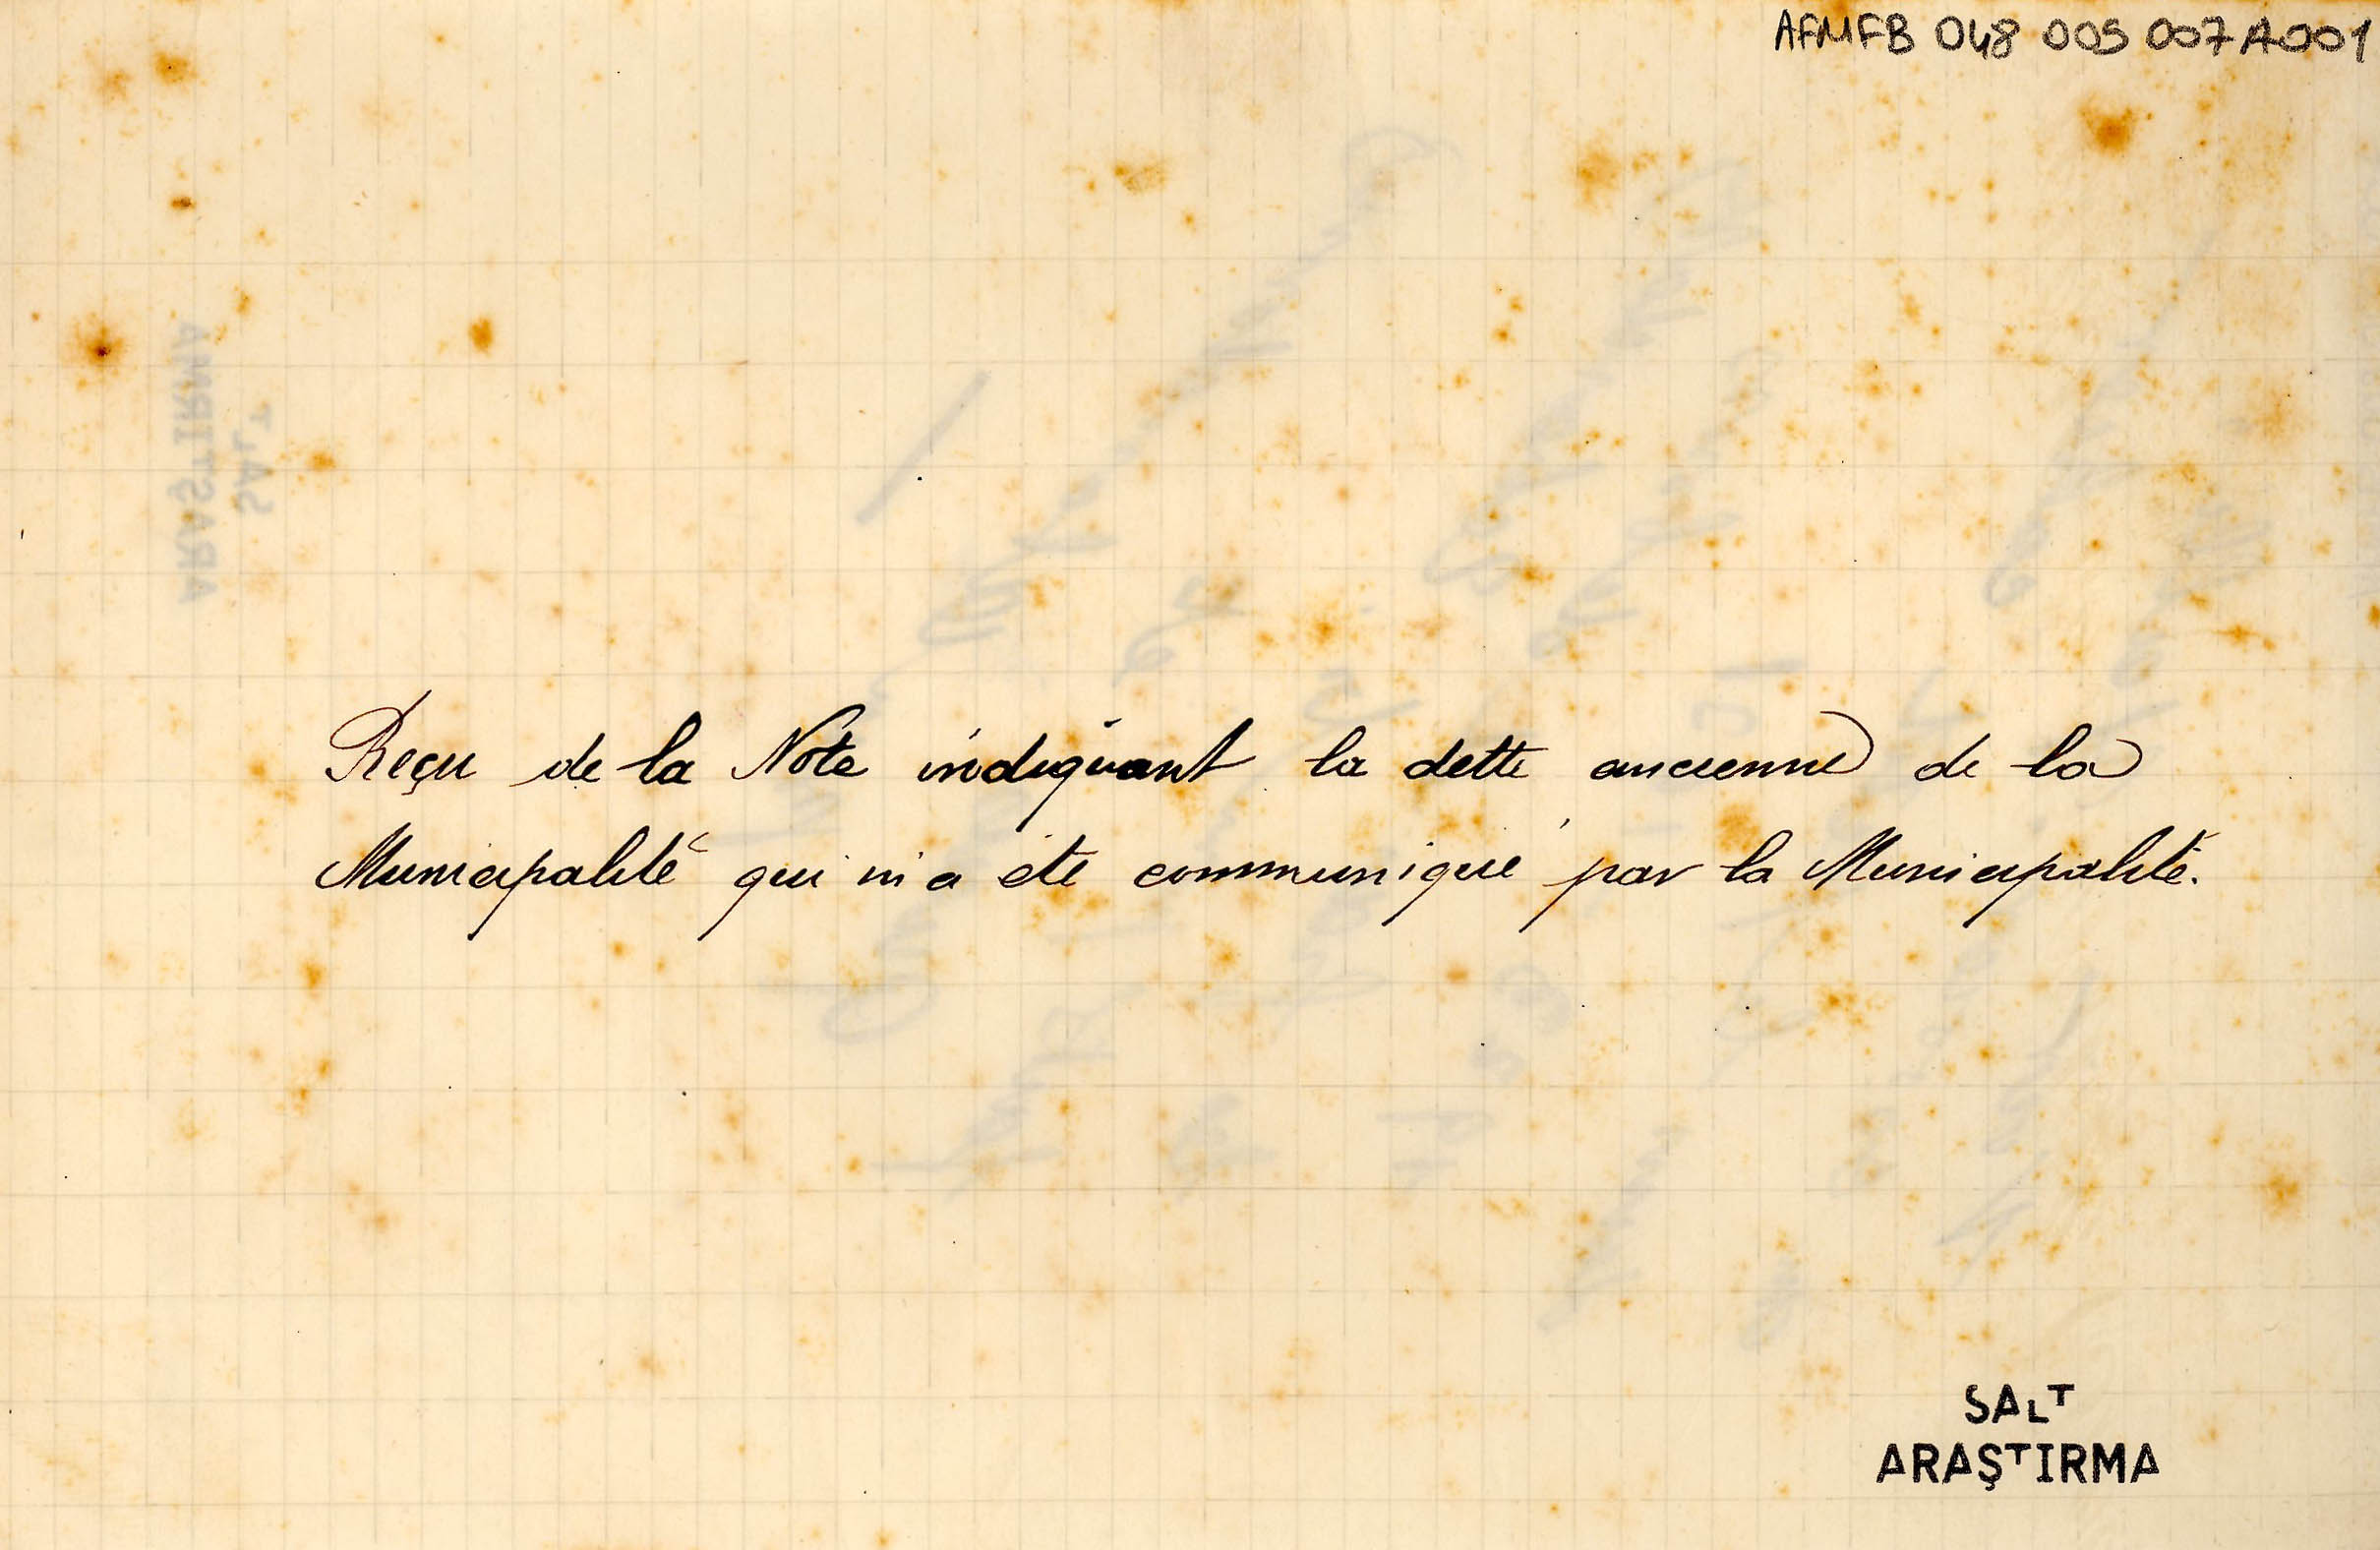 AFMFB 048 005 007 A001
Reçu de la Note indiquant la dette ancienne de la
Municipalité qui m'a été communiqué par la Municipalité.
SALT
ARAŞTIRMA